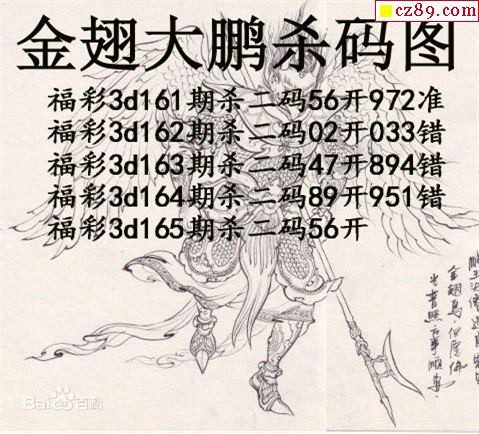 cz89.com
金翅大鹏杀码图
福彩3d161期杀二码56开972准
福彩3d162期杀二码02开033错
福彩3d163期杀二码47开894错
福彩3d164期杀二码89开951错
福彩3d165期杀二码56开
Bai百科